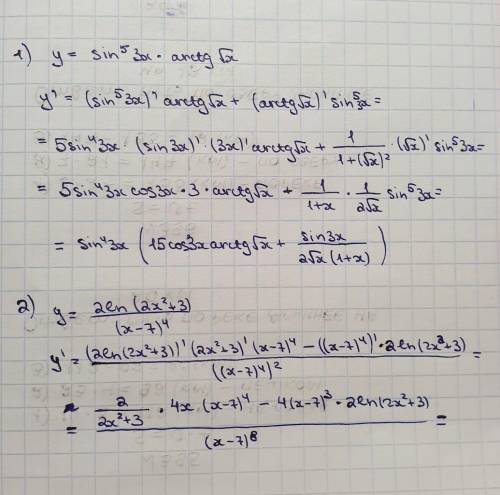 1) y = sin⁵3x · arctg√x
y' = (sin⁵3x)' arctg√x + (arctg√x)' sin⁵3x =
= 5sin⁴3x · (sin3x)' · (3x)' arctg√x + 1/(1+(√x)²) · (√x)' sin⁵3x =
= 5sin⁴3x cos3x · 3 · arctg√x + 1/(1+x) · 1/(2√x) sin⁵3x =
= sin⁴3x (15cos3x arctg√x + sin3x/(2√x(1+x)))
2) y = 2ln(2x²+3)/(x-7)⁴
y' = ((2ln(2x²+3))' (2x²+3)' (x-7)⁴ - ((x-7)⁴)' · 2ln(2x²+3))/((x-7)⁴)² =
= (2/(2x²+3) · 4x · (x-7)⁴ - 4(x-7)³ · 2ln(2x²+3))/(x-7)⁸ =